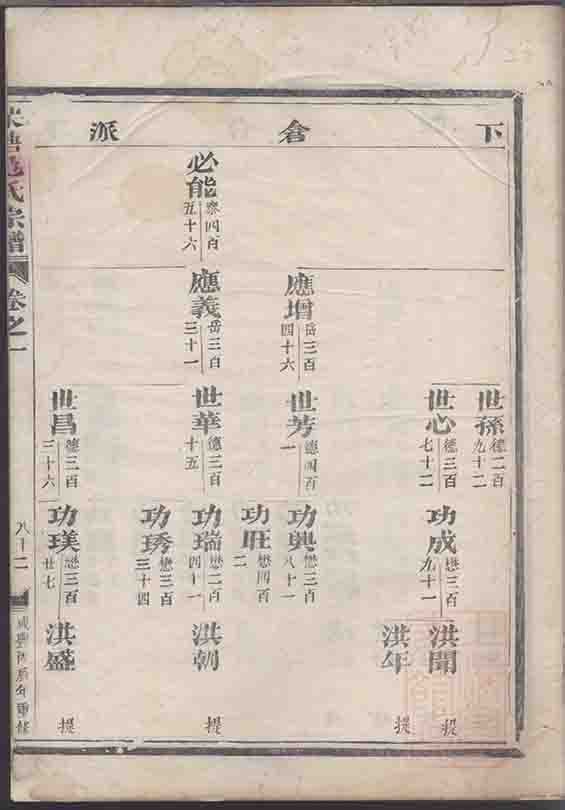 下倉派
必能
寮四百
五十六
應增
岳三百
四十六
應義
岳三百
三十一
世孫
德二百
九十二
世心
德三百
七十二
世芳
德四百
一
世華
德三百
十五
世昌
德三百
三十六
功成
懋三百
九十一
功興
懋三百
八十一
功旺
懋四百
二
功瑞
懋二百
四十一
功琇
懋三百
三十四
功瑛
懋三百
廿七
洪聞
提
洪年
提
洪朝
提
洪盛
提
氏宗譜
卷之一
八十二
年重修